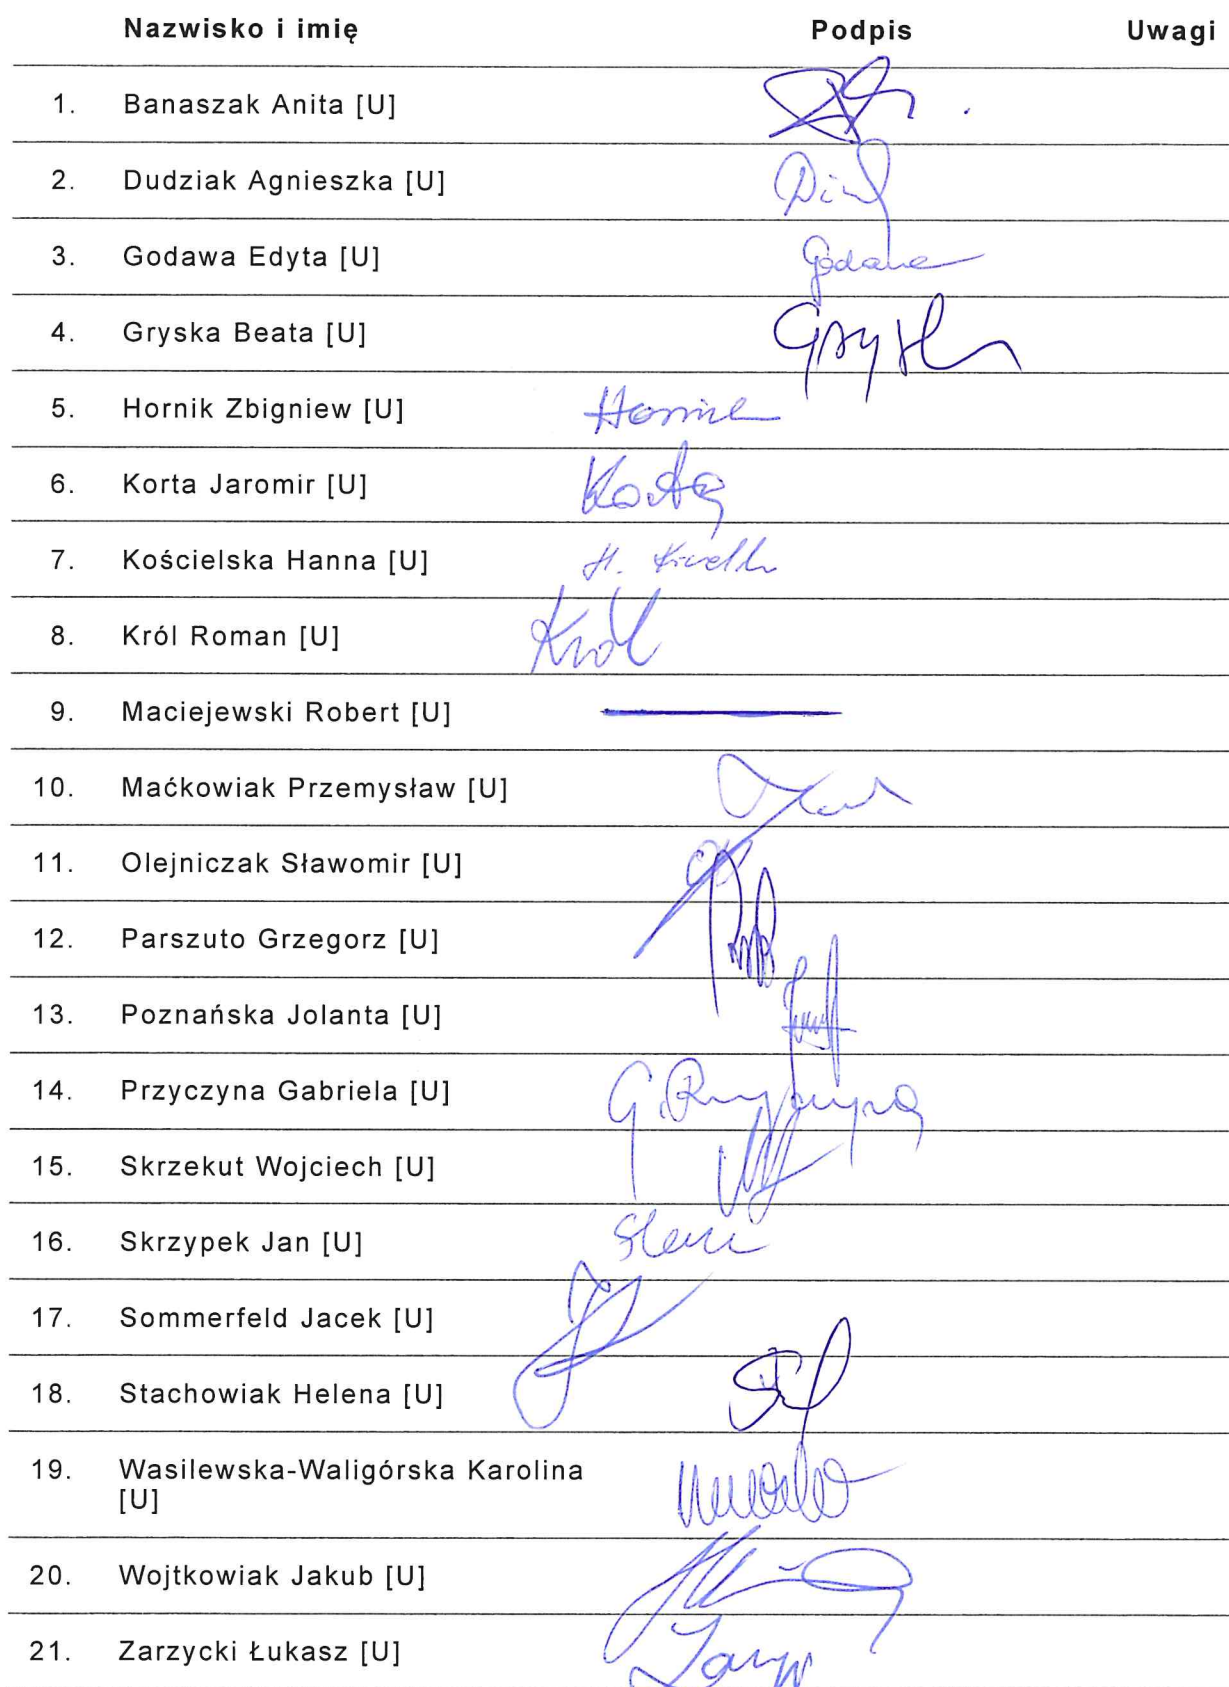 Nazwisko i imię Podpis Uwagi
1. Banaszak Anita [U]
2. Dudziak Agnieszka [U]
3. Godawa Edyta [U] Godawa
4. Gryska Beata [U]
5. Hornik Zbigniew [U] Hornik
6. Korta Jaromir [U] Korta
7. Kościelska Hanna [U] H.
8. Król Roman [U] Król
9. Maciejewski Robert [U]
10. Maćkowiak Przemysław [U]
11. Olejniczak Sławomir [U]
12. Parszuto Grzegorz [U]
13. Poznańska Jolanta [U]
14. Przyczyna Gabriela [U] G. Przyczyna
15. Skrzekut Wojciech [U]
16. Skrzypek Jan [U]
17. Sommerfeld Jacek [U]
18. Stachowiak Helena [U]
19. Wasilewska-Waligórska Karolina
[U]
20. Wojtkowiak Jakub [U]
21. Zarzycki Łukasz [U]